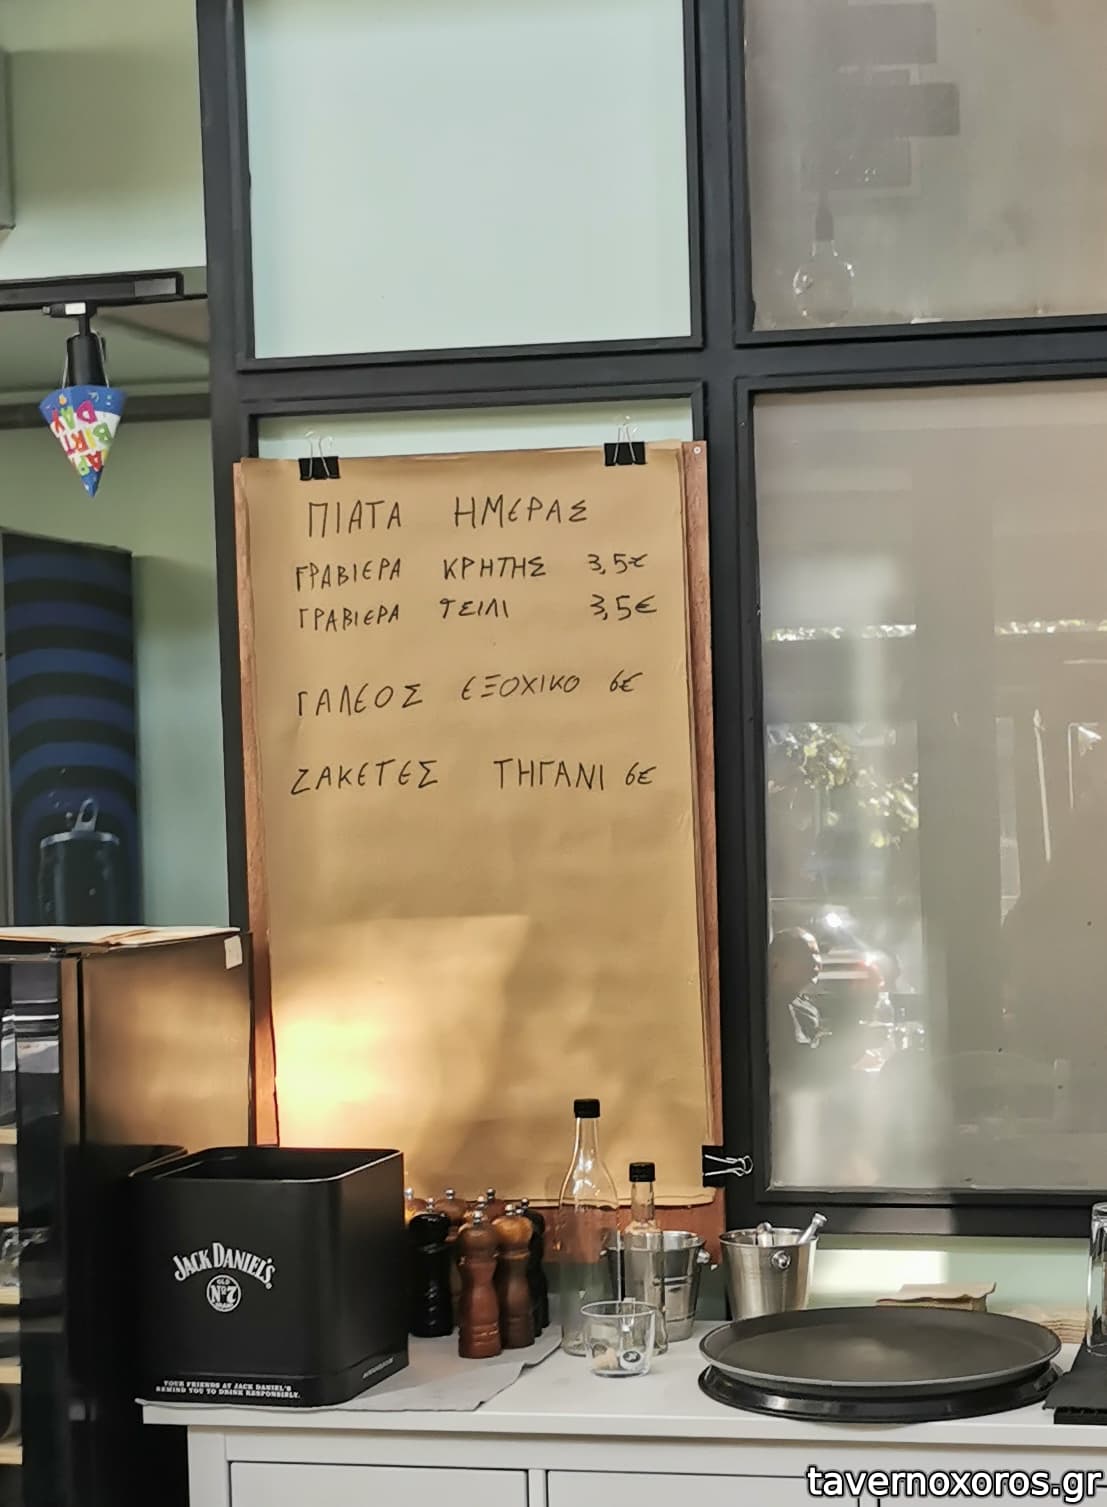 HAPPY
BIRTHDAY
ΠΙΑΤΑ ΗΜΕΡΑΣ
ΓΡΑΒΙΕΡΑ ΚΡΗΤΗΣ 3,5€
ΓΡΑΒΙΕΡΑ ΤΣΙΛΙ 3,5€
ΓΑΛΕΟΣ ΕΞΟΧΙΚΟ 6€
ΖΑΚΕΤΕΣ ΤΗΓΑΝΙ 6€
JACK DANIEL'S
OLD
Nº7
BRAND
YOUR FRIENDS AT JACK DANIEL'S
REMIND YOU TO DRINK RESPONSIBLY.
tavernoxoros.gr